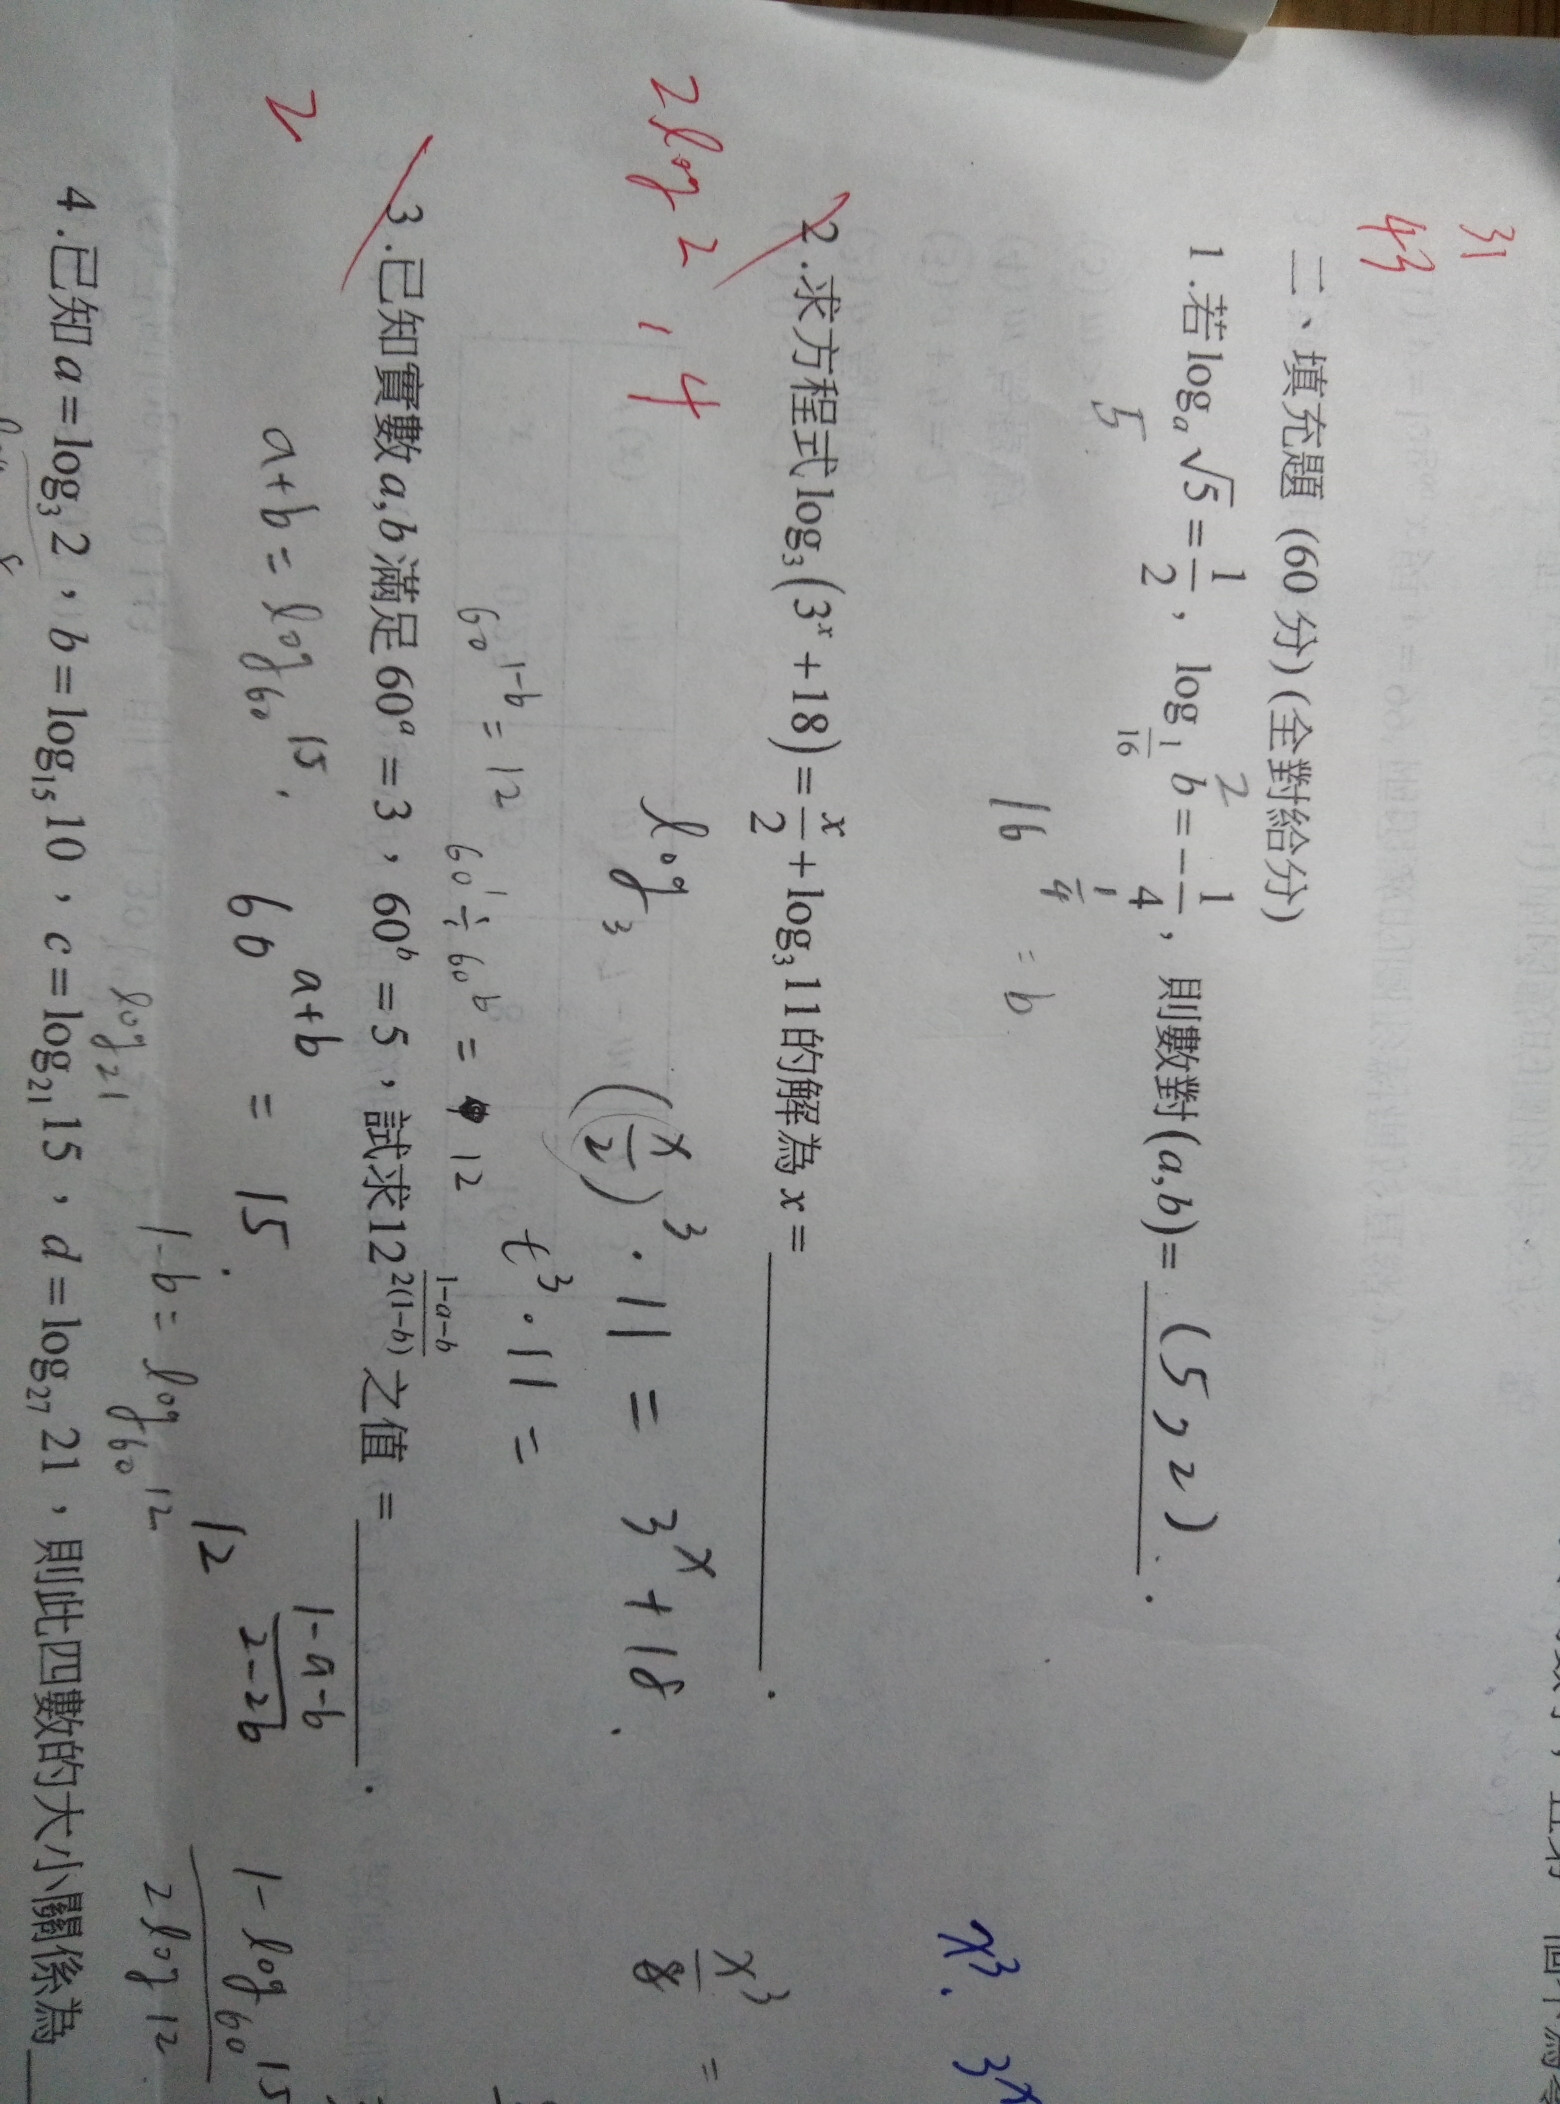 31
43
二、填充題 (60 分) (全對給分)
1 .若 log_a √5 = 1/2 , log_{1/16} b = -1/4 , 則數對 (a,b) = (5,2) .
5
2
16 1/4 = b
2 .求方程式 log_3 (3^x +18) = x/2 + log_3 11 的解為 x = ______ .
2log_3 2 , 4
log_3 (x/2)^3 · 11 = 3^x + 18 .
t^3 · 11 =
x^3 · 3^x
x^3/8 =
60^{1-b} = 12
60^1 ÷ 60^b = 12
3 .已知實數 a,b 滿足 60^a = 3 , 60^b = 5 , 試求 12^{(1-a-b)/(2(1-b))} 之值 = ______ .
2
a+b = log_60 15 .
60^{a+b} = 15 .
12^{(1-a-b)/(2-2b)}
1-log_60 15
2 log 12
1-b = log_60 12
log_21
4 .已知 a = log_3 2 , b = log_15 10 , c = log_21 15 , d = log_27 21 , 則此四數的大小關係為